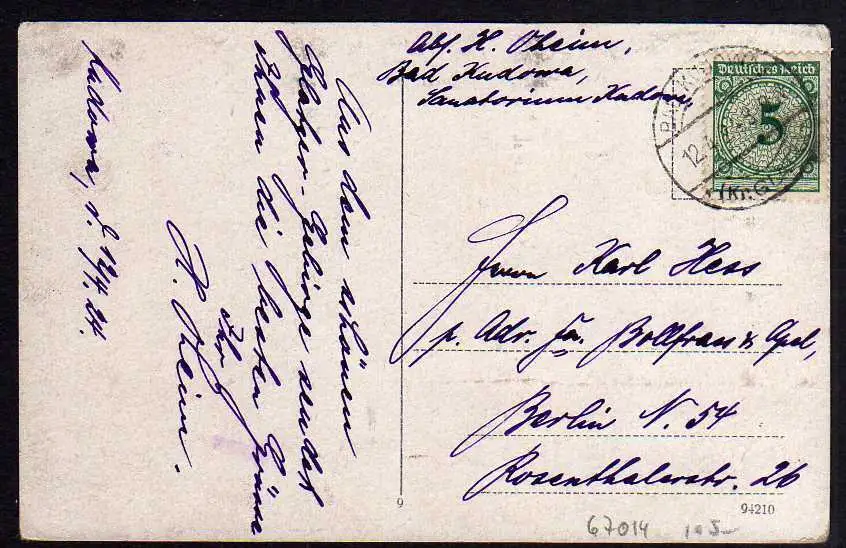 Kudowa, d. 12/4. 24.
Aus dem schönen
Glatzer-Gebirge sendet
Ihnen die besten Grüsse
Ihr
H. Oheim.
Abs. H. Oheim,
Bad Kudowa,
Sanatorium Kudowa,
Deutsches Reich
5
12.4
(Kr. G
Herrn Karl Hess
p. Adr. Fa. Bollfrass & Apel,
Berlin N. 54
Rosenthalerstr. 26
9
94210
67014